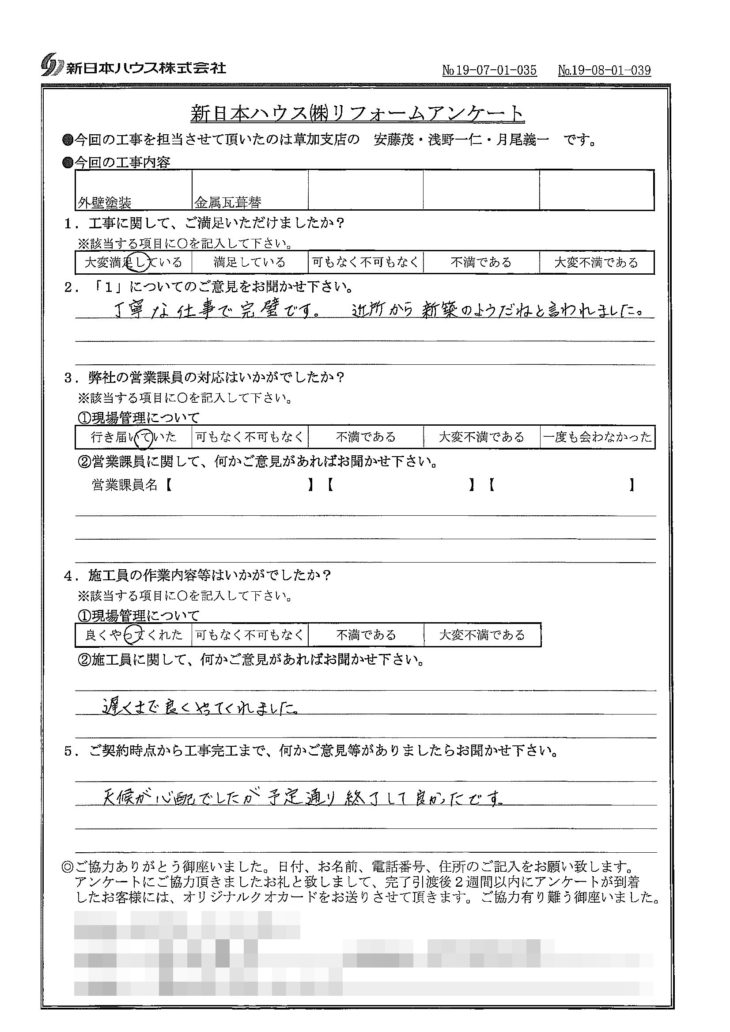 新日本ハウス株式会社 №19-07-01-035 №19-08-01-039
新日本ハウス㈱リフォームアンケート
●今回の工事を担当させて頂いたのは草加支店の 安藤茂・浅野一仁・月尾義一 です。
●今回の工事内容
外壁塗装 金属瓦葺替
1．工事に関して、ご満足いただけましたか？
※該当する項目に○を記入して下さい。
大変満足している 満足している 可もなく不可もなく 不満である 大変不満である
2．「1」についてのご意見をお聞かせ下さい。
丁寧な仕事で完璧です。 近所から新築のようだねと言われました。
3．弊社の営業課員の対応はいかがでしたか？
※該当する項目に○を記入して下さい。
①現場管理について
行き届いていた 可もなく不可もなく 不満である 大変不満である 一度も会わなかった
②営業課員に関して、何かご意見があればお聞かせ下さい。
営業課員名【 】【 】【 】
4．施工員の作業内容等はいかがでしたか？
※該当する項目に○を記入して下さい。
①現場管理について
良くやってくれた 可もなく不可もなく 不満である 大変不満である
②施工員に関して、何かご意見があればお聞かせ下さい。
遅くまで良くやってくれました。
5．ご契約時点から工事完工まで、何かご意見等がありましたらお聞かせ下さい。
天候が心配でしたが予定通り終了して良かったです。
◎ご協力ありがとう御座いました。日付、お名前、電話番号、住所のご記入をお願い致します。
アンケートにご協力頂きましたお礼と致しまして、完了引渡後２週間以内にアンケートが到着
したお客様には、オリジナルクオカードをお送りさせて頂きます。ご協力有り難う御座いました。